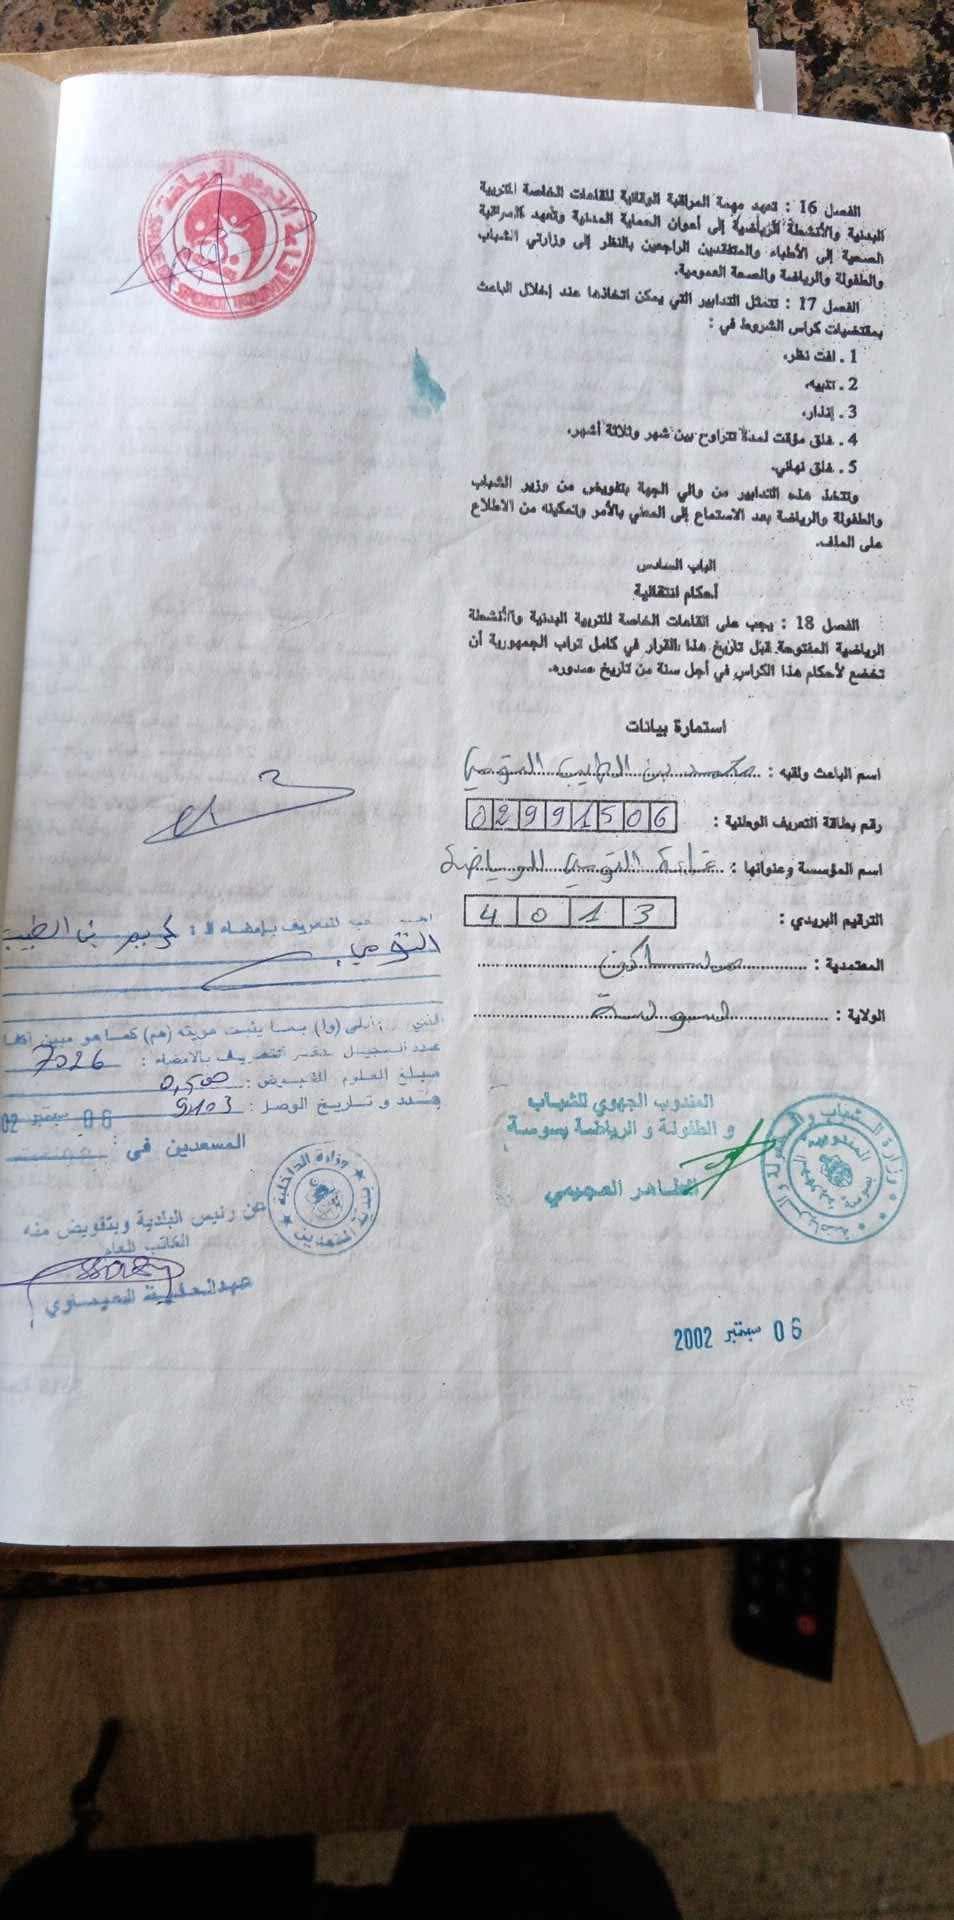 الفصل 16 : تعهد مهمة المراقبة الوقائية للقاعات الخاصة للتربية
البدنية والأنشطة الرياضية إلى أعوان الحماية المدنية وتعهد المراقبة
الصحية إلى الأطباء والمتفقدين الراجعين بالنظر إلى وزارتي الشباب
والطفولة والرياضة والصحة العمومية.
الفصل 17 : تتمثل التدابير التي يمكن اتخاذها عند إخلال الباعث
بمقتضيات كراس الشروط في :
1 . لفت نظر،
2 . تنبيه،
3 . إنذار،
4 . غلق مؤقت لمدة تتراوح بين شهر وثلاثة أشهر،
5 . غلق نهائي.
وتتخذ هذه التدابير من والي الجهة بتفويض من وزير الشباب
والطفولة والرياضة بعد الاستماع إلى المعني بالأمر وتمكينه من الاطلاع
على الملف.
الباب السادس
أحكام انتقالية
الفصل 18 : يجب على القاعات الخاصة للتربية البدنية والأنشطة
الرياضية المفتوحة قبل تاريخ هذا القرار في كامل تراب الجمهورية أن
تخضع لأحكام هذا الكراس في أجل سنة من تاريخ صدوره.
استمارة بيانات
اسم الباعث ولقبه : محمد بن الطيب التومي
رقم بطاقة التعريف الوطنية : 02991506
اسم المؤسسة وعنوانها : قاعة التومي للرياضة
الترقيم البريدي : 4013
المعتمدية : مساكن
الولاية : سوسة
المندوب الجهوي للشباب
و الطفولة و الرياضة بسوسة
الطاهر العجيمي
06 سبتمبر 2002
للتعريف بإمضاء الـ : كريم بن الطيب
التومي
أدلى (وا) بما يثبت هويته (هم) كما هو مبين أعلاه
عدد السجيل دفتر التعريف بالامضاء : 7026
مبلغ العلوم المقبوض : 0,500
عدد و تاريخ الوصل : 9103 06 سبتمبر 02
المسعدين في :
عن رئيس البلدية وبتفويض منه
الكاتب العام
وزارة الداخلية